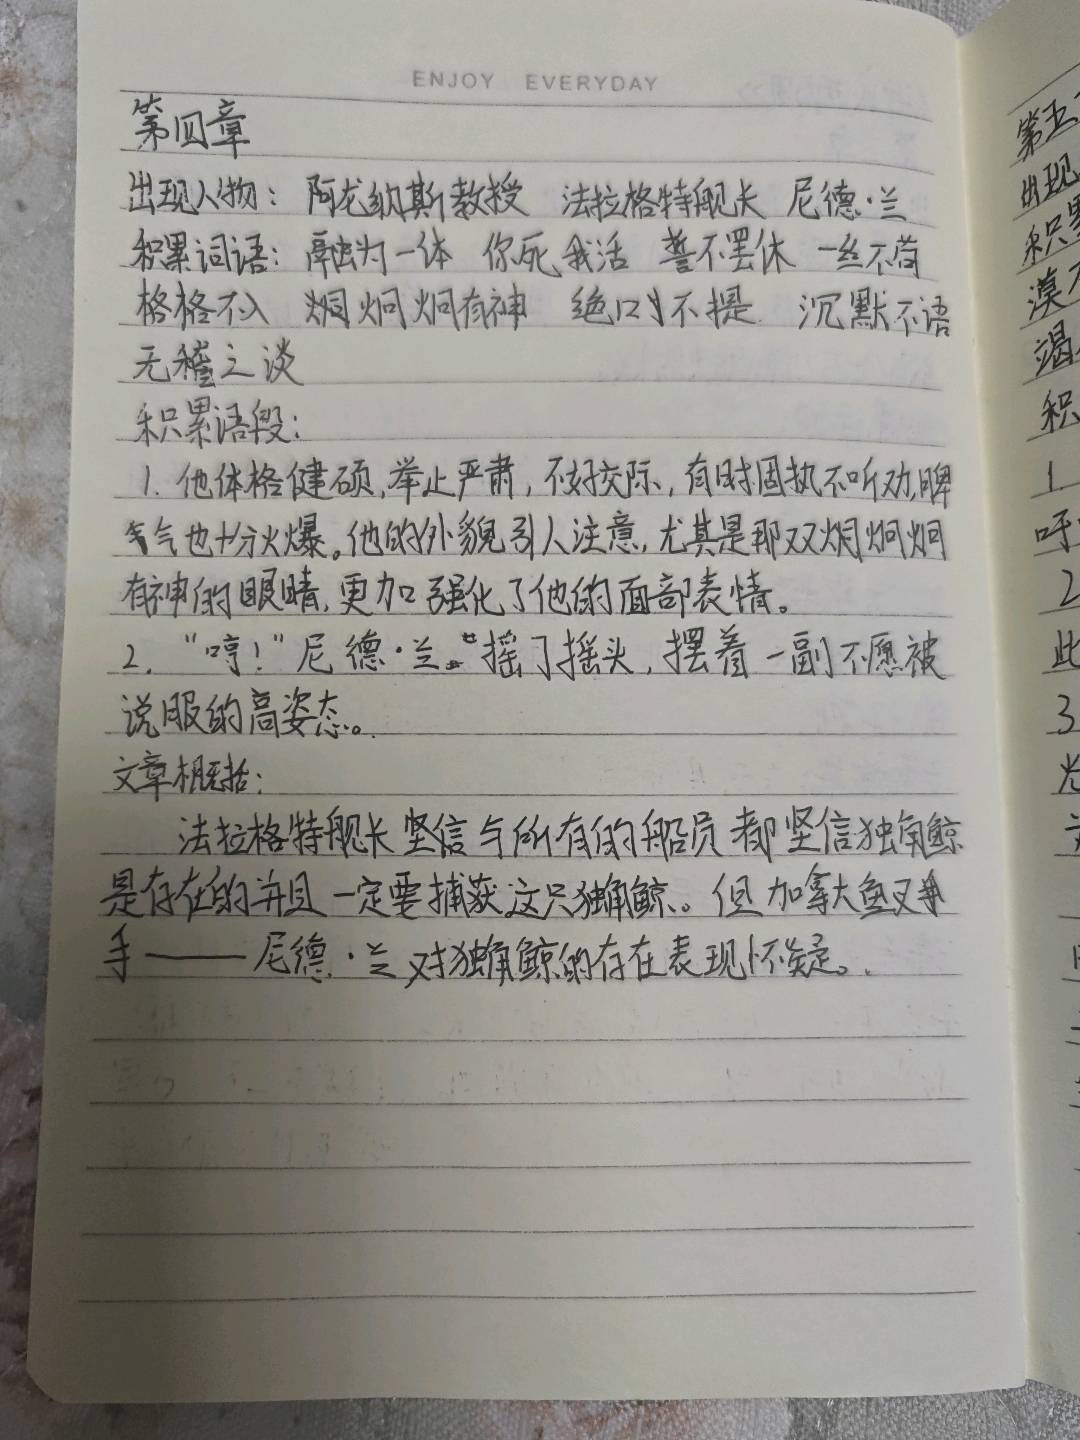 ENJOY EVERYDAY
第四章
出现人物：阿龙纳斯教授 法拉格特舰长 尼德·兰
积累词语：融为一体 你死我活 誓不罢休 一丝不苟
格格不入 炯炯炯有神 绝口不提 沉默不语
无稽之谈
积累语段：
1. 他体格健硕,举止严肃，不好交际，有时固执不听劝,脾
气也十分火爆。他的外貌引人注意,尤其是那双炯炯炯
有神的眼睛,更加强化了他的面部表情。
2. “哼！”尼德·兰 摇了摇头，摆着一副不愿被
说服的高姿态。
文章概括：
法拉格特舰长坚信与所有的船员都坚信独角鲸
是存在的并且一定要捕获这只独角鲸。但加拿大鱼叉
手——尼德·兰对独角鲸的存在表现怀疑。
第五
出现
积累
漠不
竭
积
1.
呼
2
此
3